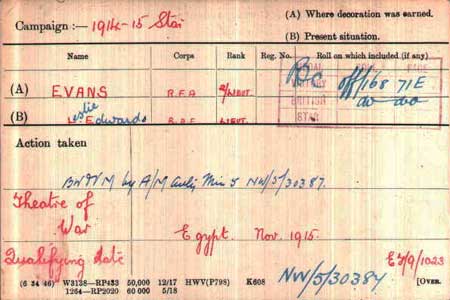 Campaign :— 1914-15 Star
(A) Where decoration was earned.
(B) Present situation.
Name Corps Rank Reg. No. Roll on which included (if any)
(A) EVANS R.F.A 2/Lieut. off/168 71E
(B) Leslie Edwards R.F.A Lieut. do do
BRITISH
STAR
Action taken
BWVM by A/M Auty Min 5 NW/5/30387.
Theatre of
War
Egypt. Nov. 1915.
Qualifying date
E7/9/1023
(6 34 46) W3138—RP433 50,000 12/17 HWV(P798) K608 NW/5/30387 [OVER.
1264—RP2020 60 000 5/18